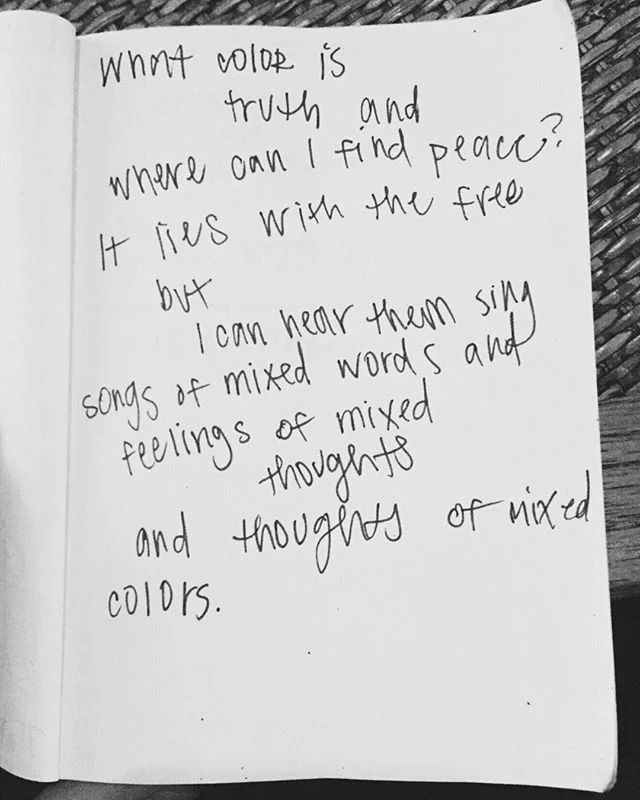 What color is
truth and
where can I find peace?
It lies with the free
but
I can hear them sing
songs of mixed words and
feelings of mixed
thoughts
and thoughts of mixed
colors.